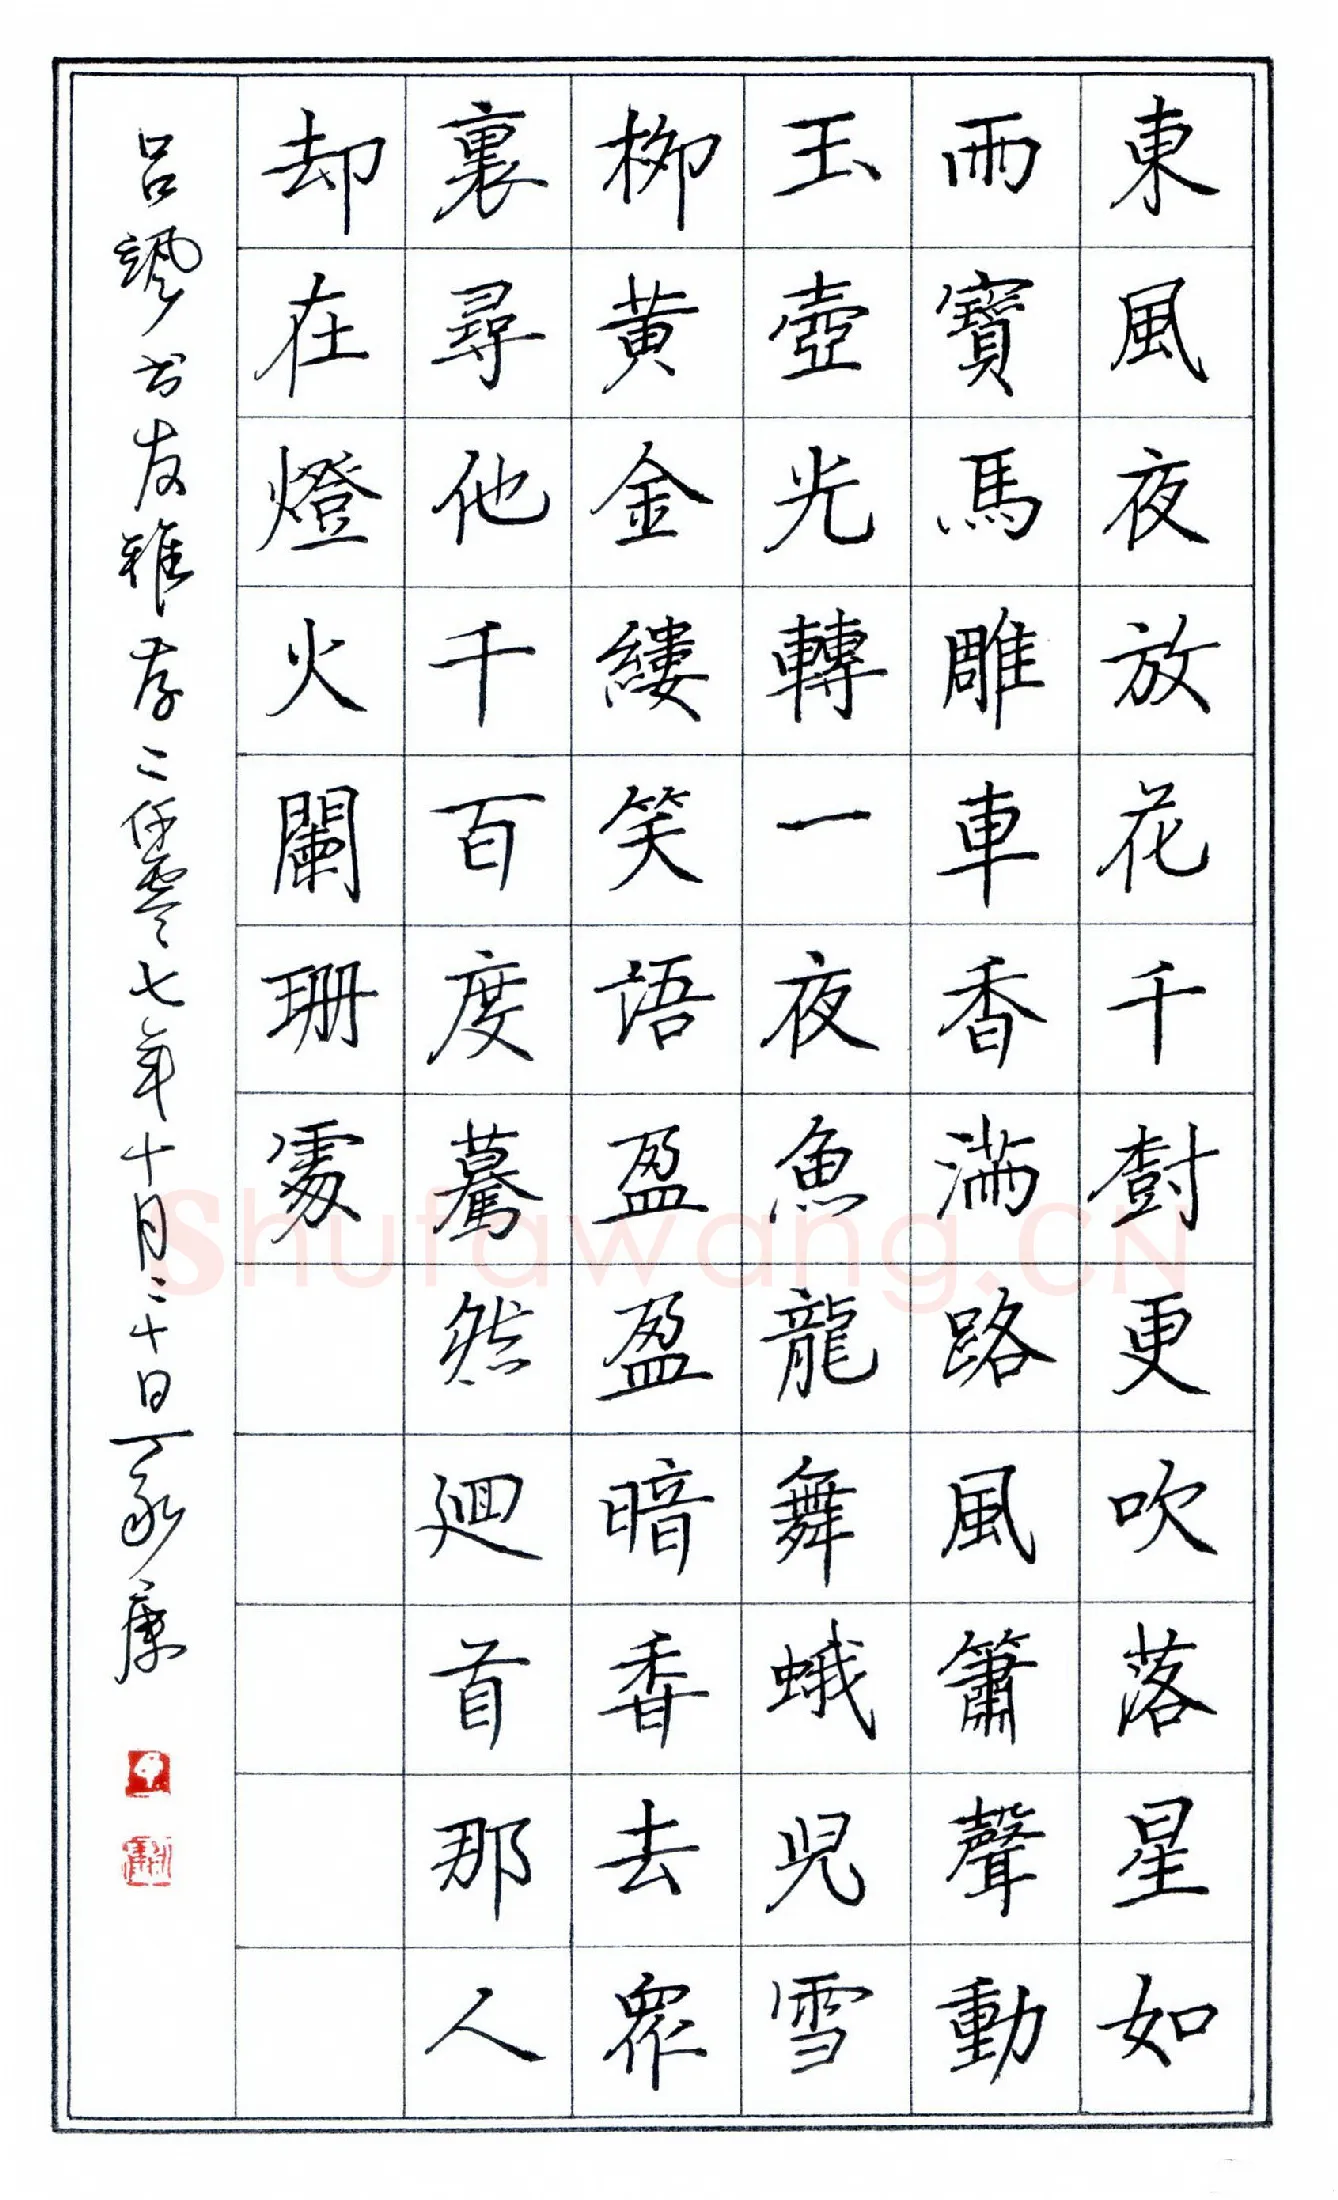 東風夜放花千樹更吹落星如
雨寶馬雕車香滿路風簫聲動
玉壺光轉一夜魚龍舞蛾兒雪
柳黄金縷笑語盈盈暗香去衆
裏尋他千百度驀然廻首那人
却在燈火闌珊處
呂书友雅存二仟零七年十月二十日丁永康
Shufawang.CN